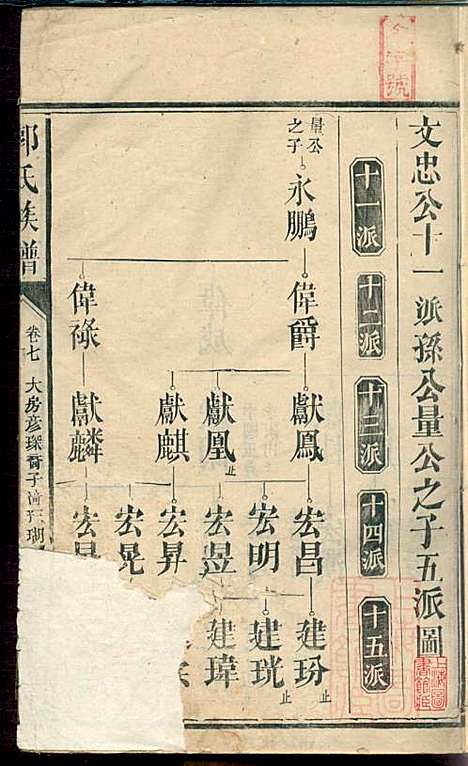 文忠公十一派孫公量公之子五派圖
十一派
十二派
十三派
十四派
十五派
量公之子
永鵬
偉爵
偉祿
獻鳳
獻凰止
獻麒
獻麟
宏昌
宏明
宏昱
宏昇
宏晃
宏
建玢止
建珖止
建瑋
郭氏族譜
卷七
大房彥琛裔子
上海圖書館藏